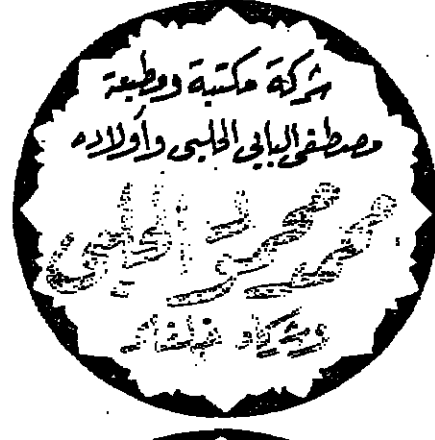 شركة مكتبة ومطبعة
مصطفى البابي الحلبي وأولاده
محمد محمود الحلبي
وشركاه خلفاء